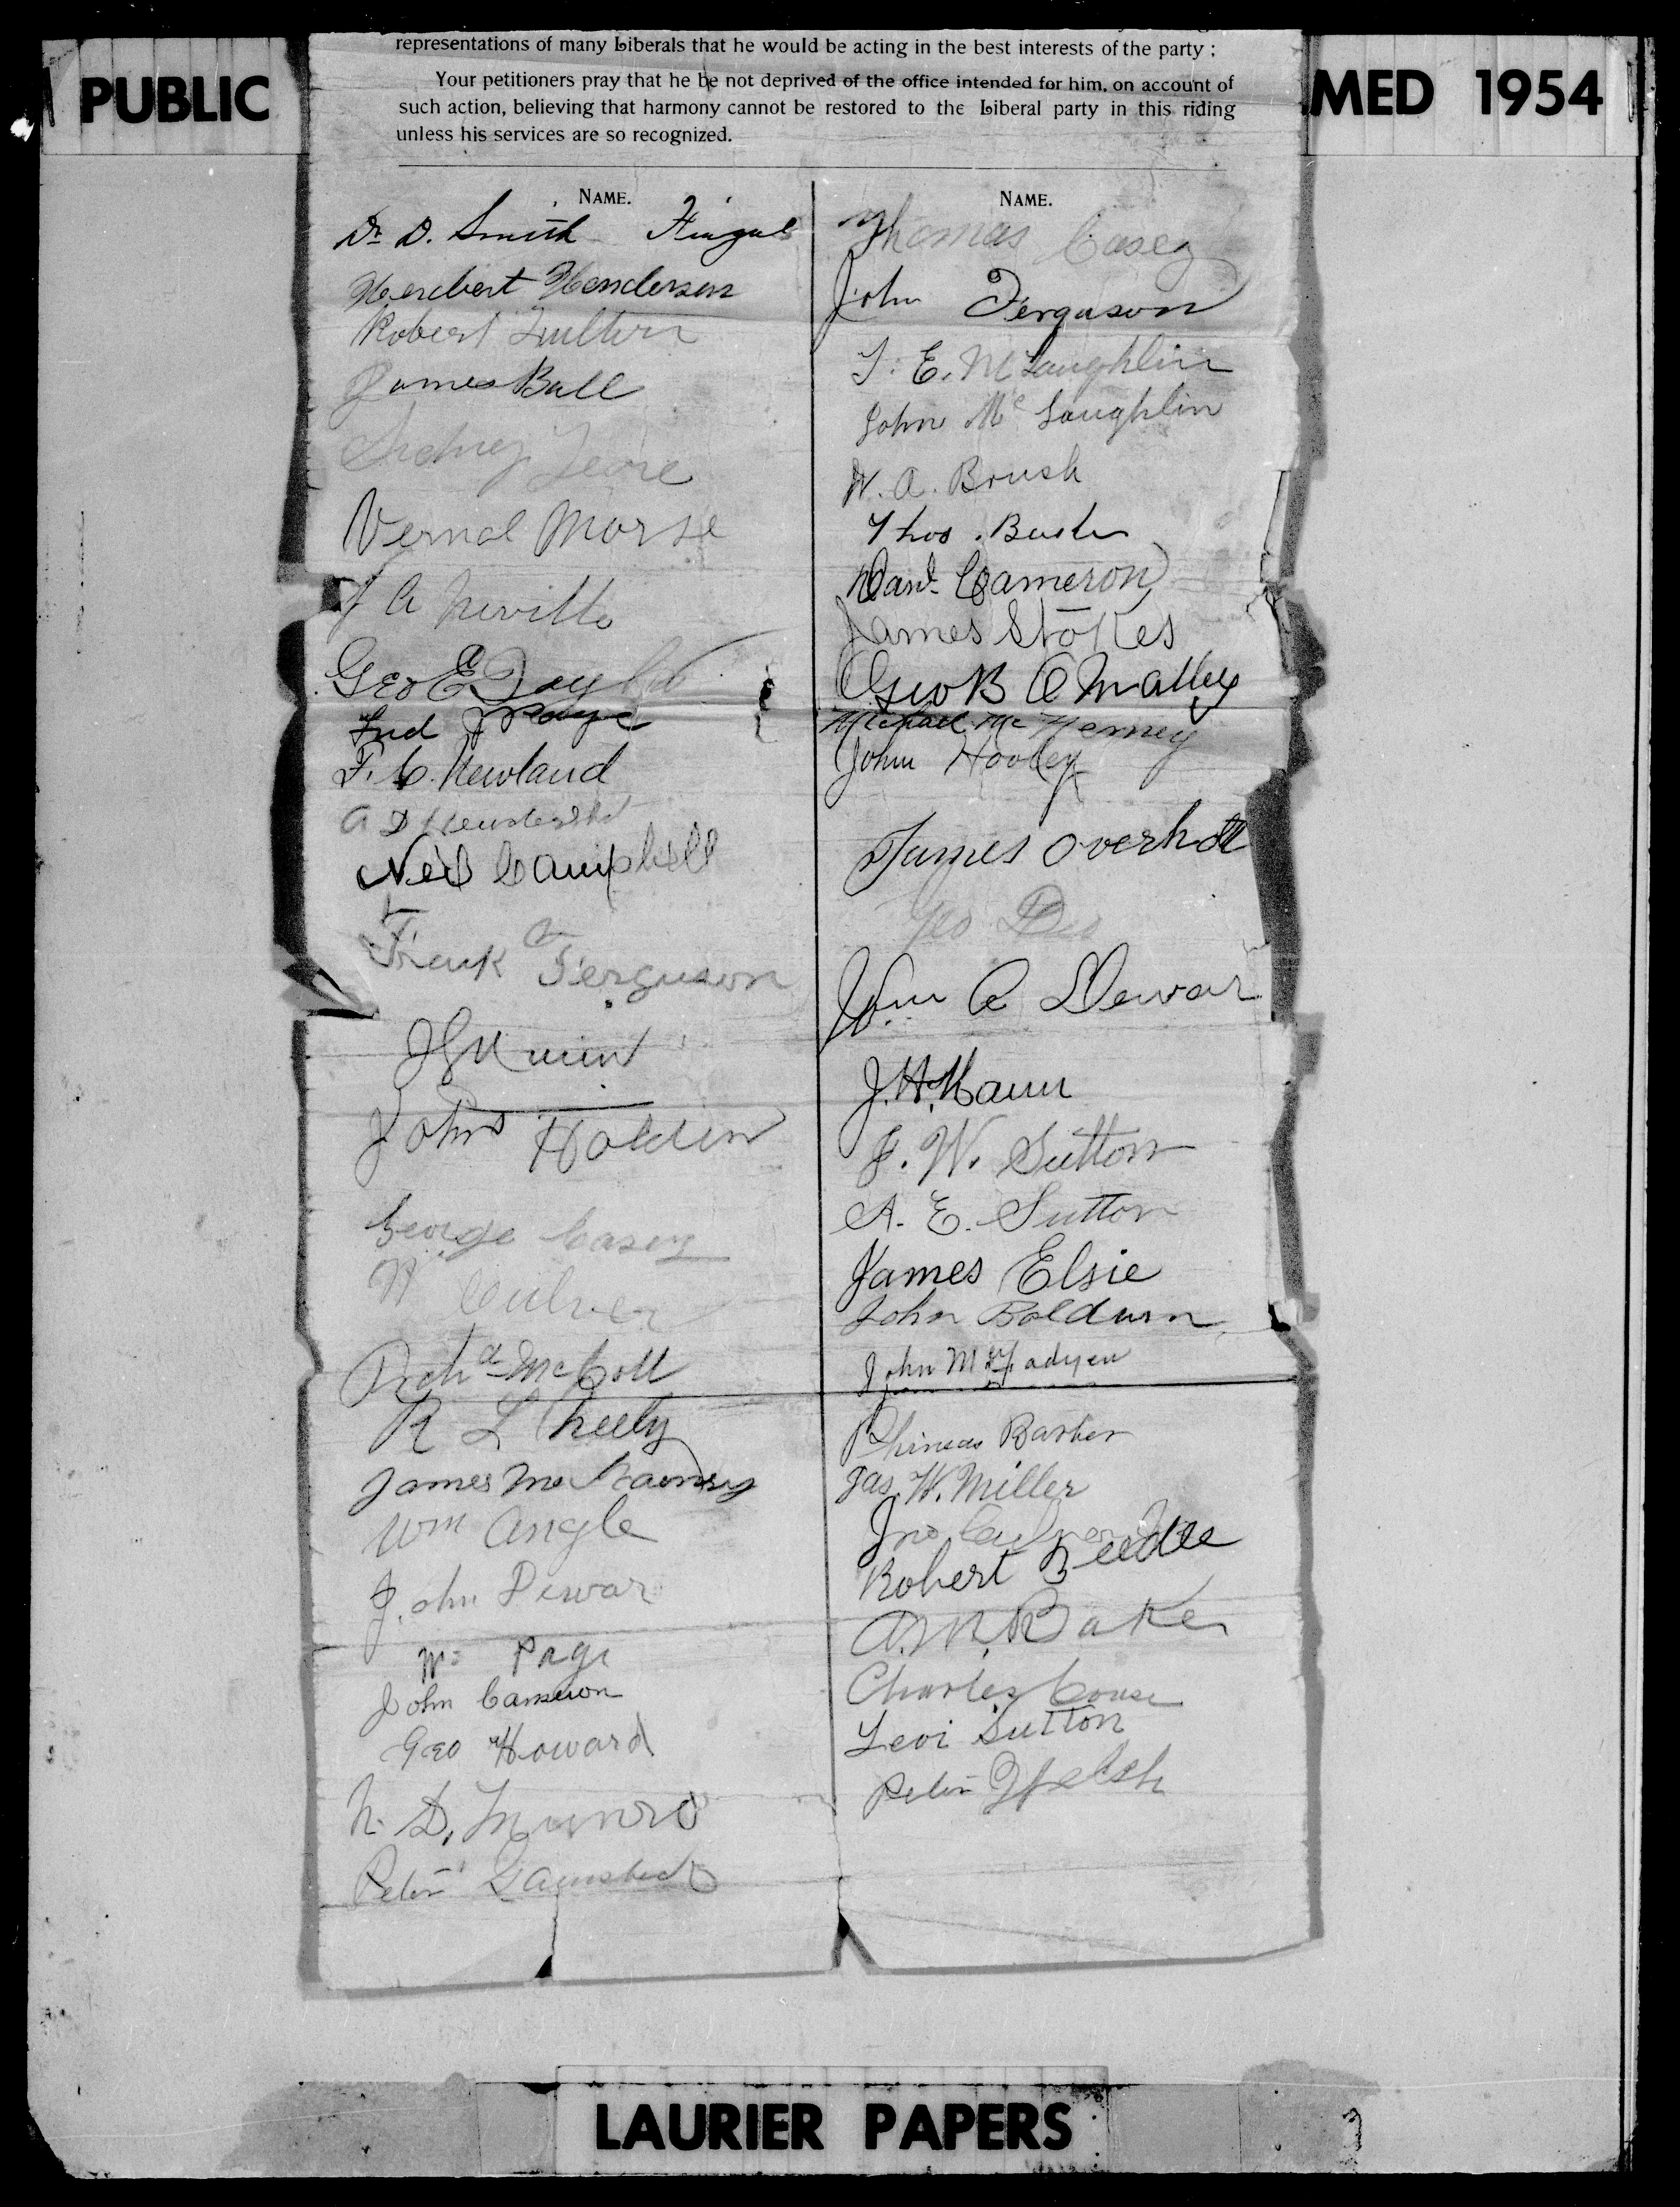 PUBLIC
MED 1954
representations of many Liberals that he would be acting in the best interests of the party ;
Your petitioners pray that he be not deprived of the office intended for him, on account of
such action, believing that harmony cannot be restored to the Liberal party in this riding
unless his services are so recognized.
NAME.
Dr D. Smith Fingal
Herebert Henderson
Robert
James Ball
Sidney
Vernal Morse
A Neville
Geo E Taylor
Fred J Page
F. C. Newland
A D
Neil Campbell
Frank Ferguson
John Holden
George Casey
W Culver
Archd McColl
R L
James Mc
Wm Angle
John Dewar
Wm Page
John Cameron
Geo Howard
N. D. Munro
Peter
NAME.
Thomas Casey
John Ferguson
T. E. McLaughlin
John McLaughlin
W. A. Brush
Thos. 
Danl. Cameron
James Stokes
Geo B O Malley
Michael Mc Nerney
John Hooley
James Overholt
Geo
Wm A Dewar
J. H.
F. W. Sutton
A. E. Sutton
James Elsie
John Baldwin
John McFadyen
Phineas Barber
Jas. W. Miller
Jno Culver
Robert Beedle
A. M. Baker
Charles Couse
Levi Sutton
Peter Welsh
LAURIER PAPERS